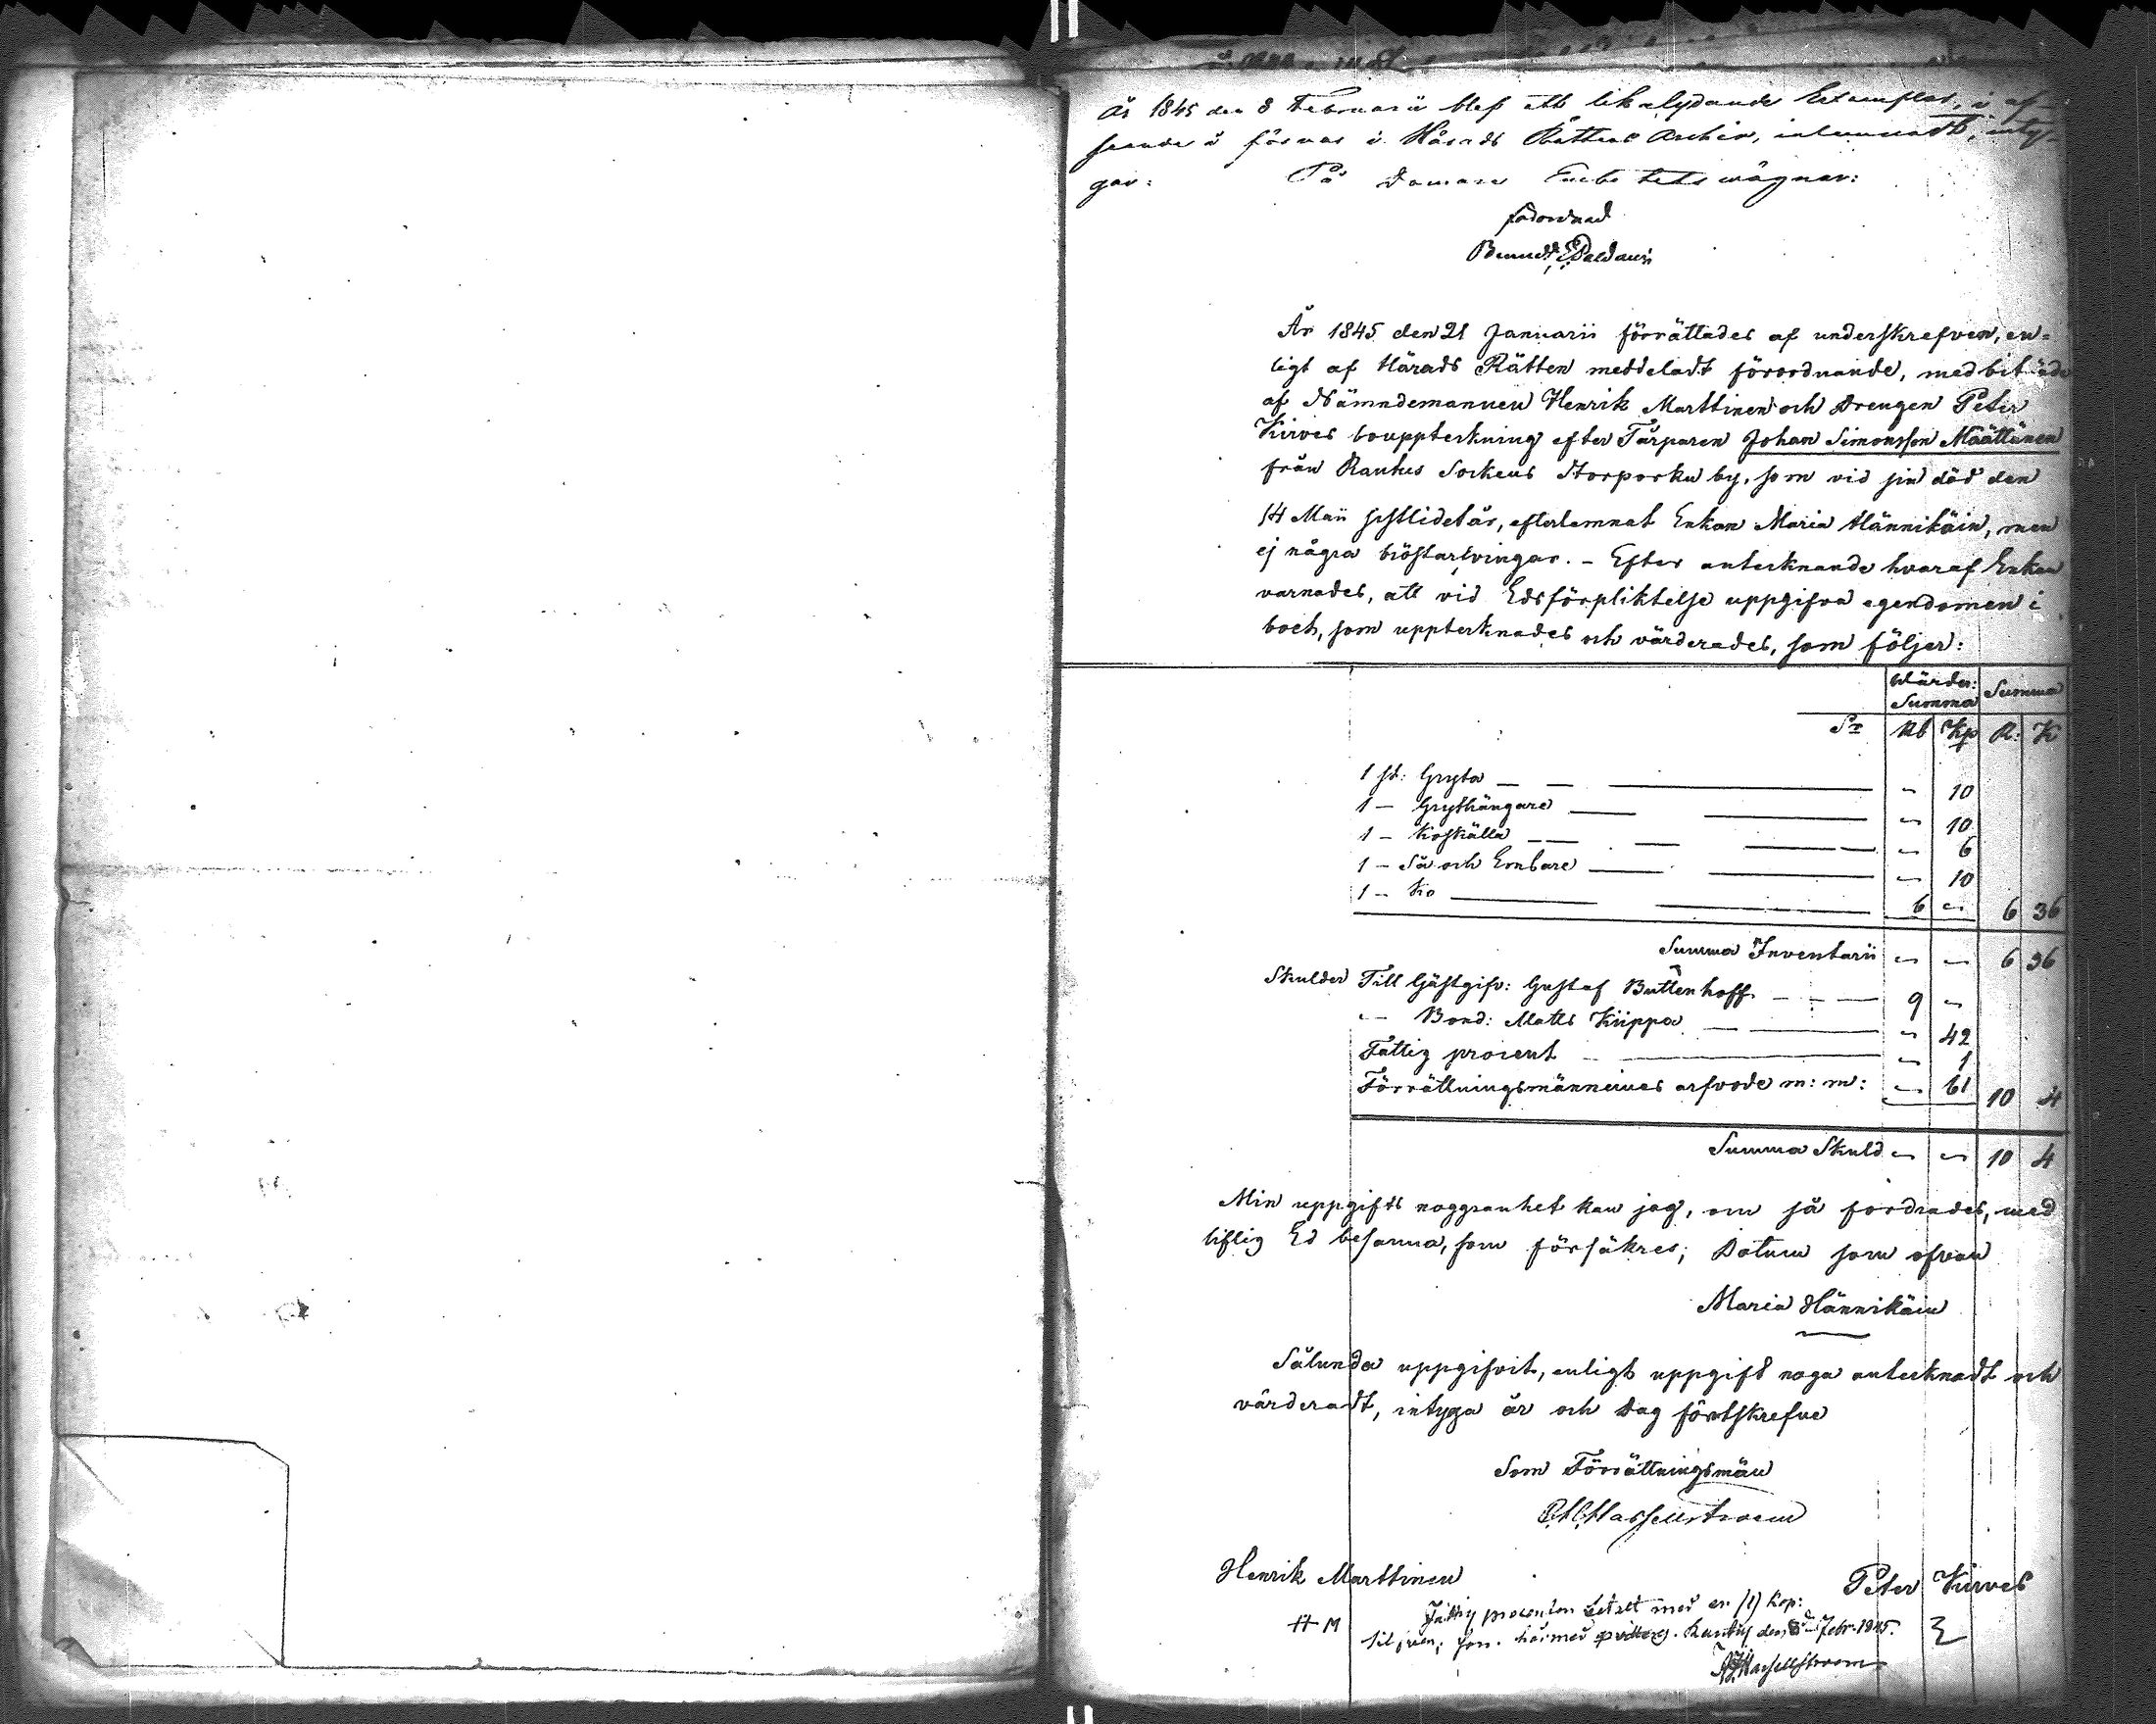 År 1845 den 8 Februarii blef ett likalydande Exemplar, i af-
seende å förvar i Härads Rättens Archiv, inlemnadt, inty-
gar: På Domare Embetets wägnar:
förordnad
År 1845 den 21 Januarii förrättades af underskrefven, en-
ligt af Härads Rätten meddeladt förordnande, med biträde
af Nämndemannen Henrik Marttinen och Drengen Peter
Kirves bouppteckning efter Torparen Johan Simonsson Määttänen
från Rautus Sockens Storporku by, som vid sin död den
14 Maii sistlidet år, efterlemnat Enkan Maria Hännikäin, men
ej några bröstarfvingar. - Efter antecknande hvaraf Enkan
varnades, att vid Edsförpliktelse uppgifva egendomen i
boet, som upptecknades och värderades, som följer:
Wärder: Summa Summa
Sr Rb Kp R: K
1 st: Gryta — — — " 10
1 — Grythängare — — " 10
1 — Koskälla — — — " 6
1 — Så och Embare — — " 10
1 — Ko — — 6 " 6 36
Summa Inventarii " " 6 36
Skulder Till Gästgifv: Gustaf Buttenhoff — — 9 "
" Bond: Matts Kiippa — — " 42
Fattig procent — — " 1
Förrättningsmännernes arfvode m: m: " 61 10 4
Summa Skuld " " 10 4
Min uppgifts noggranhet kan jag, om så fordrades, med
liflig Ed besanna, som försäkres; Datum som ofvan
Maria Hännikäin
Sålunda uppgifvit, enligt uppgift noga antecknadt och
värderadt, intyga år och dag förutskrefne
Som Förrättningsmän
Hassellstroem
Henrik Marttinen Peter Kirves
H M
Fattig procenten betalt med en (1) kop:
silfver, som härmed qvitteras. Rautus den 8 Febr. 1845.
Hassellstroem